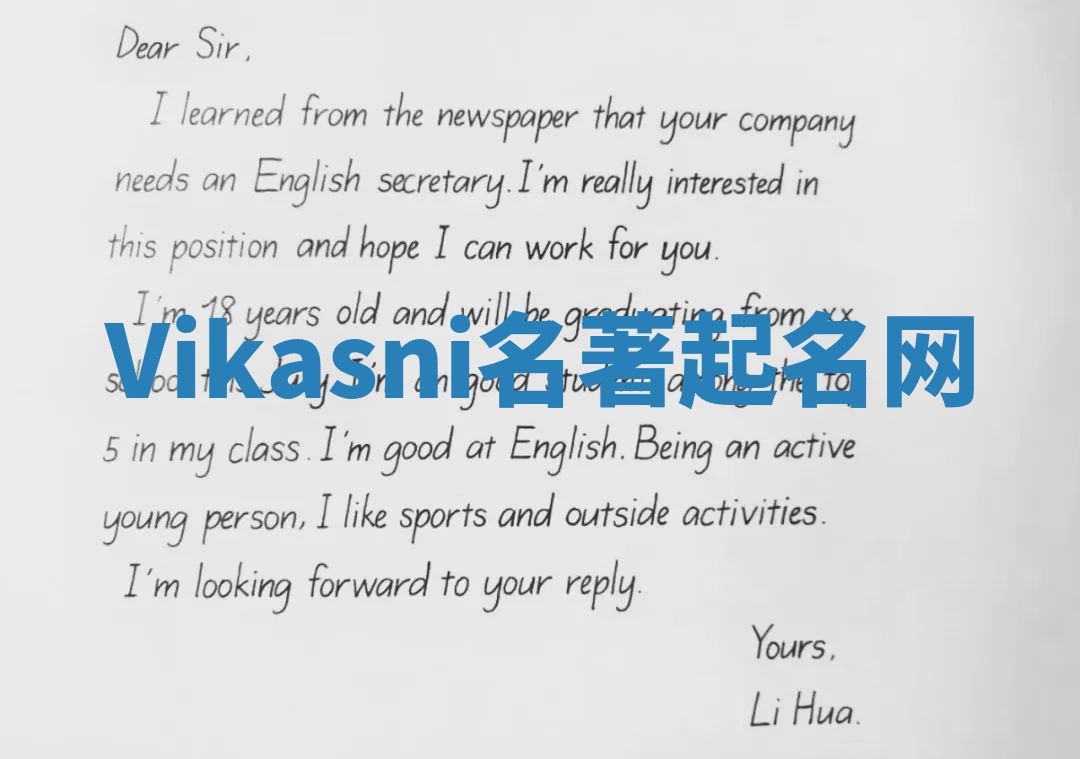 Dear Sir,
I learned from the newspaper that your company
needs an English secretary. I'm really interested in
this position and hope I can work for you.
I'm 18 years old and will be graduating from xx
Vikasni名著起名网
school this July. I'm an good student among the top
5 in my class. I'm good at English. Being an active
young person, I like sports and outside activities.
I'm looking forward to your reply.
Yours,
Li Hua.